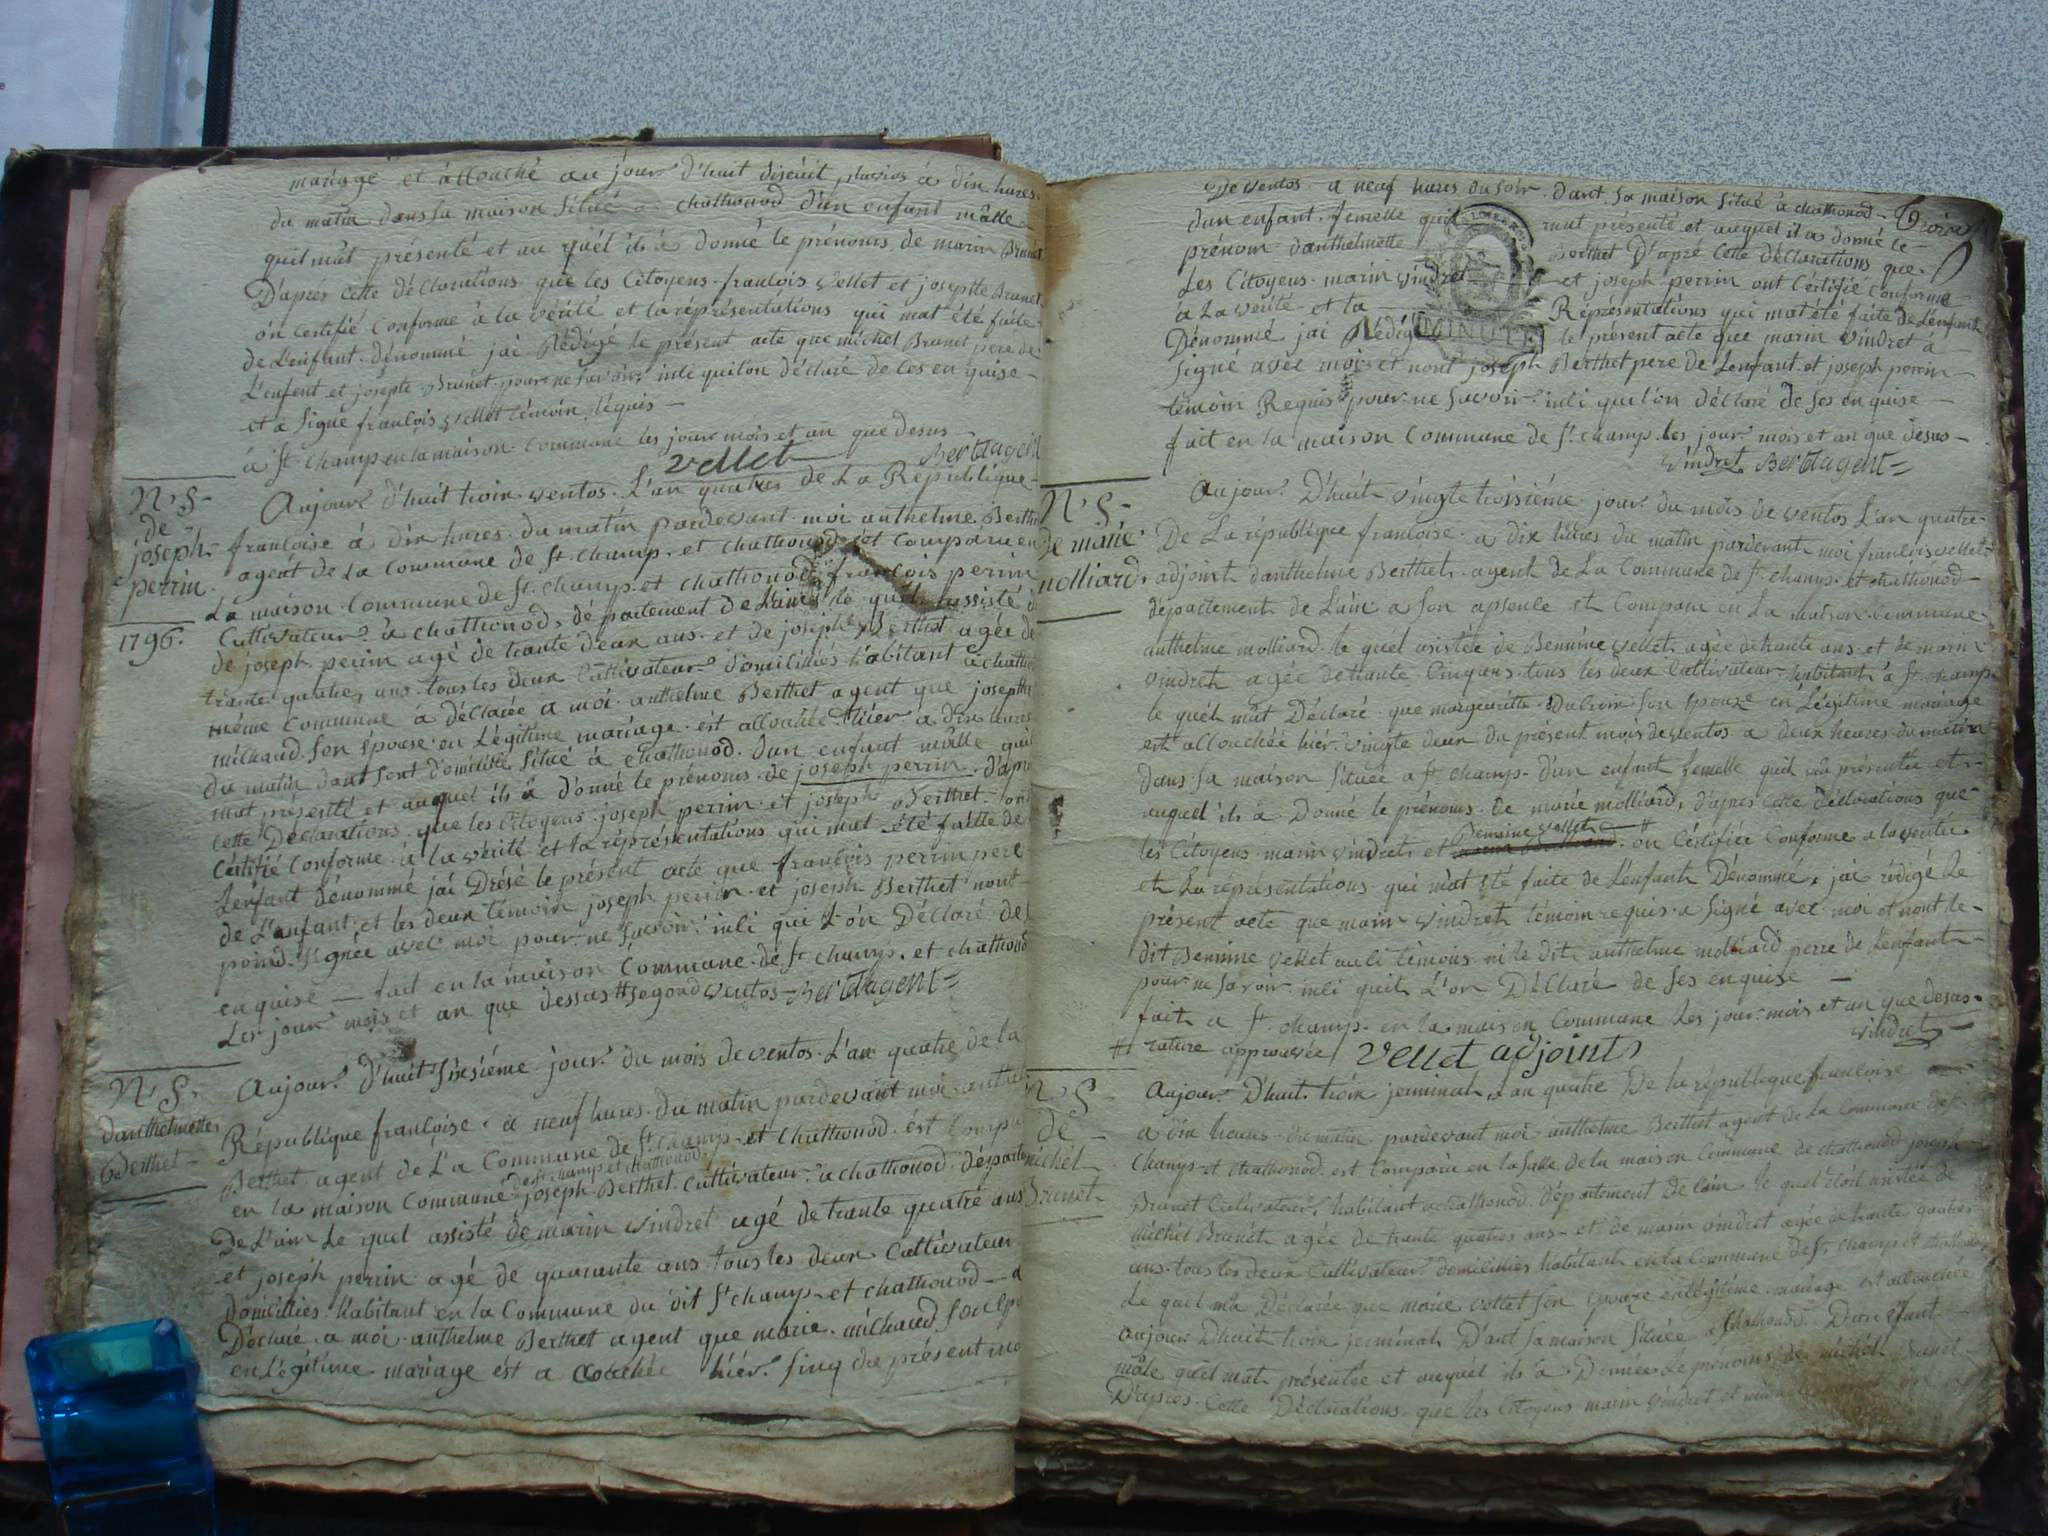 mariage et allouché au jour d'huit diseuit pluvios à dix hures
du matin dans la maison situé a chathonod d'un enfant mâlle
quil mat présenté et au quél ils à donné le prénoms de marin Brunet
D'aprés cette déclarations que les Citoyens francois vellet et josephte Brunet
ón certifié Conforme à la vérité et la réprésentations qui mat été faite
de L'enfant dénommé jai Rédégé le présent acte que michel Brunet pere de
L'enfent et josepte Brunet pour ne savoir inli quil'on déclaré de les en quise
et a Signe francois vellet témoin réquis
à St champ en la maison Commune les jour mois et an que desus
vellet Bert agent
N. S.
de
joseph
perrin
1796.
Aujour d'huit troix ventos L'an quatre de La Republique
francoise à dix hures du matin pardevant moi anthelme Berthet
agent de La Commune de St champ et chathonod est Comparu en
La maison Commune de St champ et chathonod françois perrin
Cultivateur à chathonod, département de L'ain le quél assisté
de joseph perrin agé de trante deux ans et de joseph Berthet agée de
trante quatre ans tous les deux Cultivateur domicilliés habitant a chathonod
même Commune à déclarée a moi anthelme Berthet agent que josephte
michaud son épouse en Légitime mariage est allouchée hier à dix heures
du matin dant sont domicille situé à chathonod dun enfant mâlle quil
mat présenté et auquel ils à donné le prénoms de joseph perrin d'apre
cette Déclarations que les Citoyens joseph perrin et joseph Berthet on
Certifié Conforme à la vérité et la réprésentations qui mat été faitte de
Lénfant dénommé jai Drésé le présent acte que françois perrin pere
de L'anfant et les deux témoin joseph perrin et joseph Berthet nont
poind Signée avec moi pour ne savoir inli qui L'ón Déclaré de
en quise — fait en la maison Commune de St champ et chathonod
Les jour mois et an que dessus # segond ventos Bert agent
N. S.
danthelmette
Berthet
Aujour d'huit Sixsiéme jour du mois de ventos L'an quatre de la
République françoise a neuf hures du matin pardevant moi anthelme
Berthet agent de L'a Commune de St champ et chathonod ést Compa
de St champ et chathonod
en la maison Commune joseph Berthet Cultivateur a chathonod départe
De L'ain Le quel assisté de marin vindret agé de trante quatre ans
et joseph perrin agé de quarante ans tous les deux Cultivateur
Domicillies habitant en la Commune du dit St champ et chathonod a
Déclaré a moi anthelme Berthet agent que marie michaud son épo
en Légitime mariage ést a Couchée hiér Sinq du présent mo
De ventos a neuf hures du soir dant sa maison situé à chathonod Troix
dun enfant femelle quil mat présenté et auquel il a donné le
prénom danthelmette Berthet D'apré cette déclarations que
Les Citoyens marin vindret et joseph perrin ont Certifié conforme
à La verité et la Réprésentations qui mat été faite de L'enfant
Dénommé jai Rédigé le présent acte que marin vindret à
MINUTE
signé avec moi et nont joseph Berthet pere de Lenfant et joseph perrin
témoin Requis pour ne savoir inli quil'ón déclaré de ses en quise
fait en la maison Commune de St champ les jour mois et an que desus
vindret Bert agent
N. S.
de marie
molliard
Aujour D'huit vingte troisiéme jour du mois de ventos L'an quatre
De La république francoise a dix hures du matin pardevant moi françois vellet
adjoint danthelme Berthet agent de La Commune de St champ et chathonod
département de Lain a son apsence est Comparu en La maison Commune
anthelme molliard le quel asistée de Bennine vellet agée de trante ans et de marin
vindret agée de trante Cinq ans tous les deux Cultivateur habitant à St champ
le quél mat Déclaré que margueritte Dulroix son épouse en Légitime mariage
est allouchée hiér vingte deux du présent mois de ventos a deux heures du matin
dans sa maison situeé a St champ d'un enfant femelle quil ma présentée et
auquel ils à Donné le prénoms de marie molliard, d'apres cette déclarations que
Bennine vellet #
les Citoyens marin vindret et on Certifiée Conforme a la verité
et La representations qui m'at été faite de L'enfant Dénommé, jai rédigé Le
présent acte que marin vindret témoin requis a signé avec moi et nont le
dit Bennine vellet auli témons ni le dit anthelme molliard perre de Lenfant
pour ne savoir inli quil L'on Déclaré de ses en quise —
fait a St champ en la maison Commune Les jour mois et an que desus
# rature approuvée vellet adjoint vindret
N. S.
de
michel
Brunet
Aujour D'huit troix jerminal, L'an quatre De la république francoise
a dix heures du matin pardevant moi anthelme Berthet agent de La Commune de St
champ et chathonod est Comparu en la salle de la maison Commune de chathonod joseph
Brunet Cultivateur, habitant a chathonod département de lain le quel étoit asistée de
michel Brunét agée de trante quatres ans et de marin vindret agée de trante quatres
ans tous les deux Cultivateur domicilies habitant en la Commune de St champ et chathonod
Le quel ma Déclarée que marie vellet son épouze en Légitime mariage est allouchée
aujour Dhuit troix jerminal D'ant sa maison située a chathonod D'un enfant
mâle quél mat présentée et auquél ils à Donnée Le prénoms de michél Brunet
D'apres Cette Déclarations que les Citoyens marin vindret et